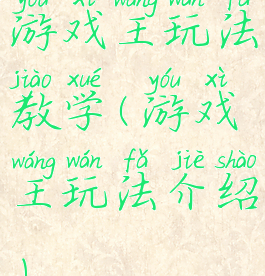 yóu xì wáng wán fǎ
游戏王玩法
jiào xué yóu xì
教学(游戏
wáng wán fǎ jiè shào
王玩法介绍
)